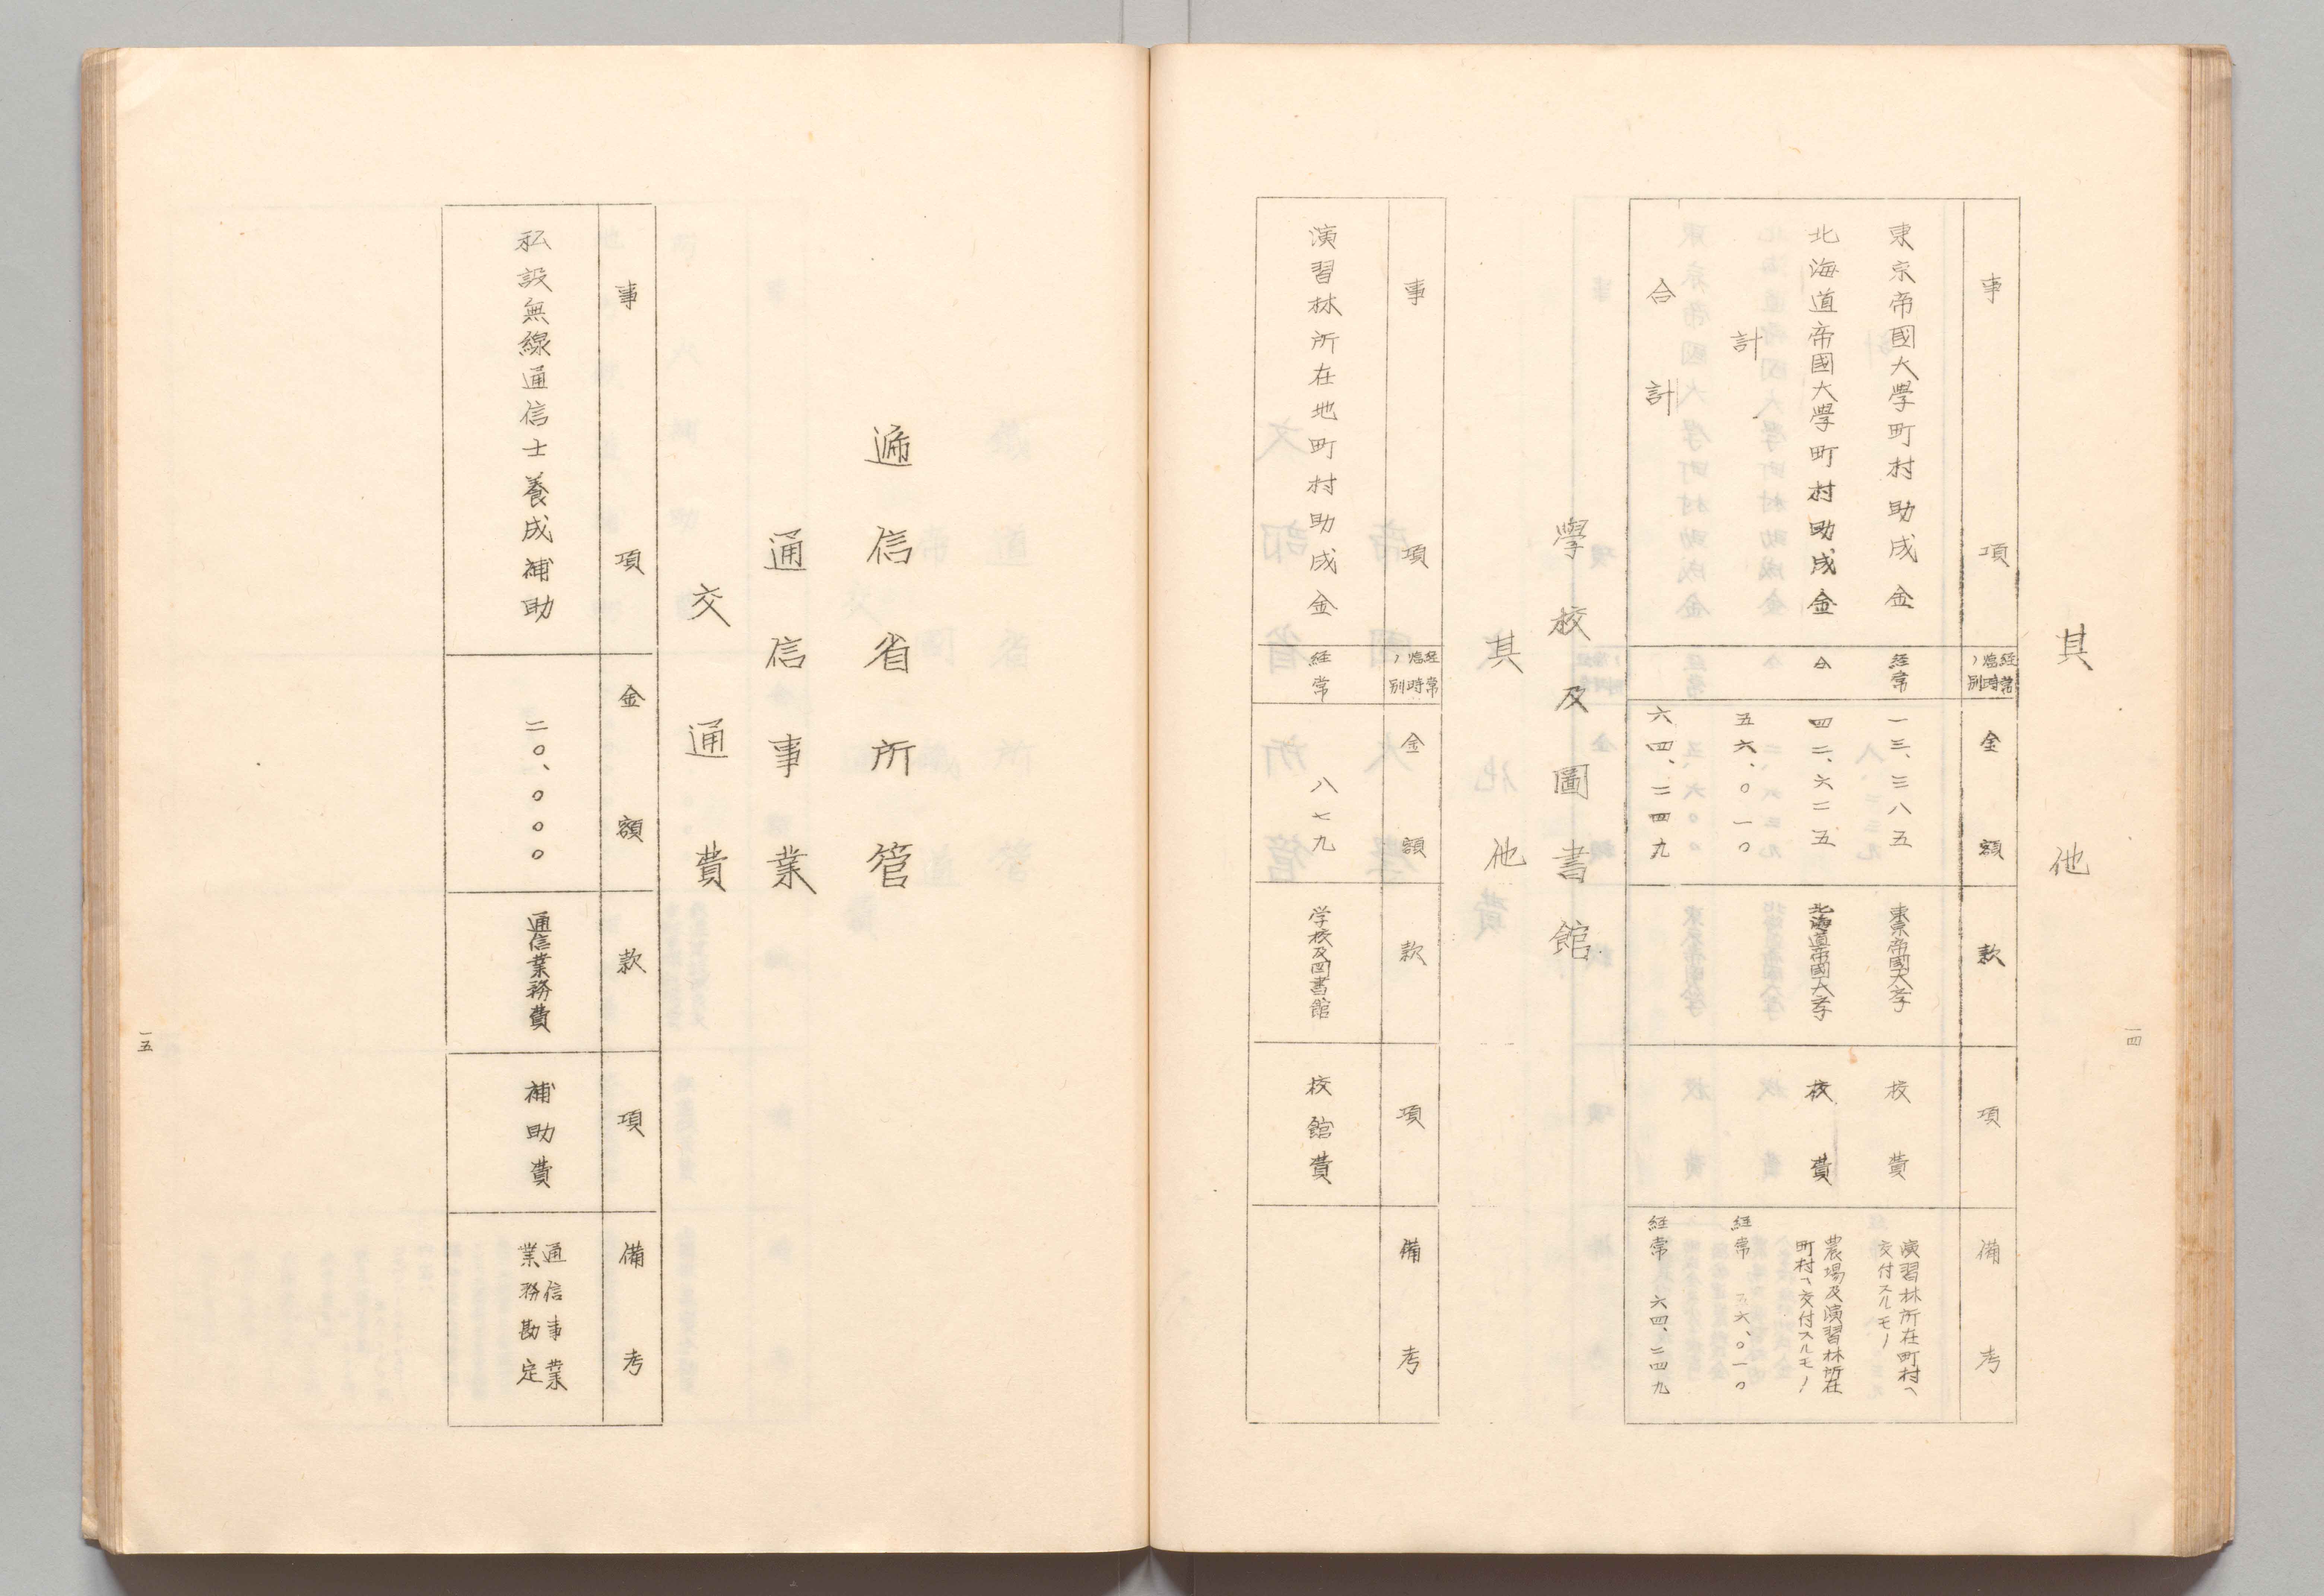 其他
事項
経常臨時ノ別
金額
款
項
備考
東京帝國大學町村助成金
経常
一三、三八五
東京帝國大学
校費
演習林所在町村ヘ
交付スルモノ
北海道帝國大學町村助成金
仝
四二、六二五
北海道帝國大学
校費
農場及演習林所在
町村ヘ交付スルモノ
計
五六、〇一〇
経常
五六、〇一〇
合計
六四、二四九
経常 六四、二四九
學校及圖書館
其他
事項
経常臨時ノ別
金額
款
項
備考
演習林所在地町村助成金
経常
八七九
学校及図書館
校館費
一四
逓信省所管
通信事業
交通費
事項
金額
款
項
備考
私設無線通信士養成補助
二〇、〇〇〇
通信業務費
補助費
通信事業
業務勘定
一五